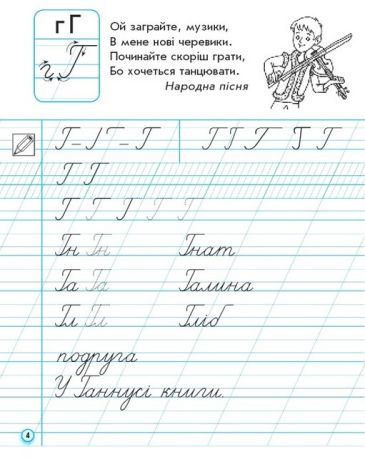 г Г
г Г
Ой заграйте, музики,
В мене нові черевики.
Починайте скоріш грати,
Бо хочеться танцювати.
Народна пісня
Г Г Г Г Г
Г Г
Г Г Г Г
Гн Гн Гнат
Га Га Галина
Гл Гл Гліб
подруга
У Ганнусі книги.
4